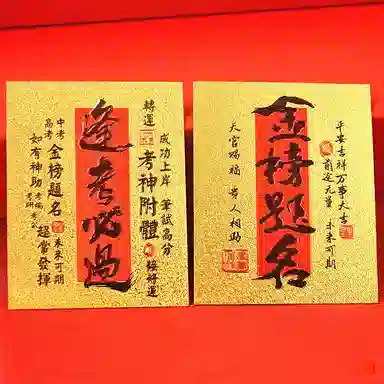 轉運
考神附體
成功上岸 筆試高分
接好運
逢考必過
中考
高考
金榜題名
如有神助
考編
考研
考公
超常發揮
未來可期
金榜題名
天官賜福 貴人相助
平安吉祥 万事大吉
前途无量 未來可期